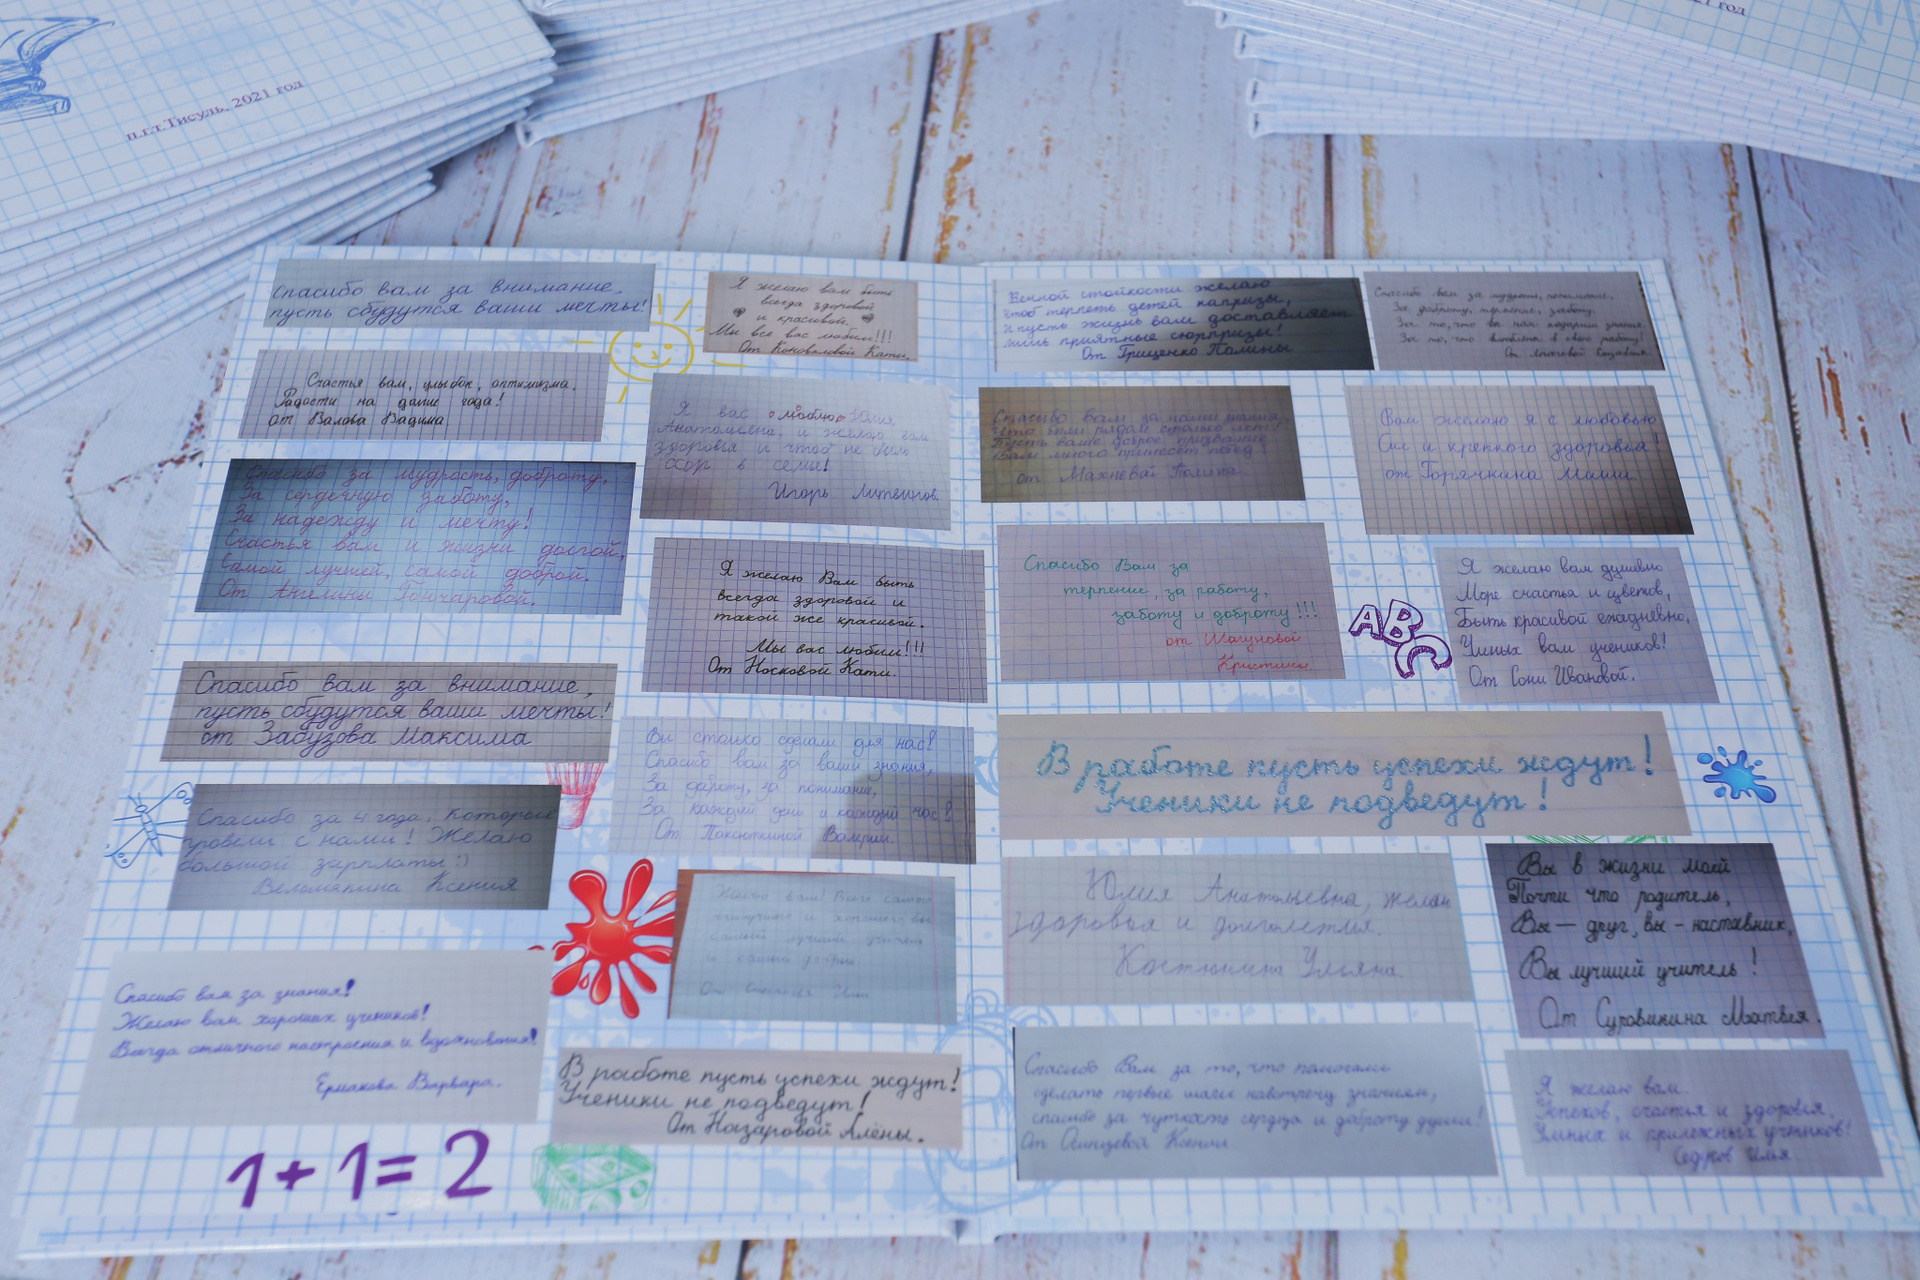 п.г.т.Тисуль, 2021 год
год
Спасибо вам за внимание,
пусть сбудутся ваши мечты!
Счастья вам, улыбок, оптимизма.
Радости на долгие года!
от Валова Вадима
Спасибо за мудрость, доброту,
За сердечную заботу,
За надежду и мечту!
Счастья вам и жизни долгой,
Самой лучшей, самой доброй.
От Ангелины Гончаровой.
Спасибо вам за внимание,
пусть сбудутся ваши мечты!
от Забузова Максима
Спасибо за 4 года, которые
провели с нами! Желаю
большой зарплаты :)
Веломякина Ксения
Спасибо вам за знания!
Желаю вам хороших учеников!
Всегда отличного настроения и вдохновения!
Ермакова Варвара.
1+1=2
Я желаю вам быть
всегда здоровой
и красивой.
Мы все вас любим!!!
От Коноваловой Кати.
Я вас люблю Юлия
Анатольевна, и желаю вам
здоровья и чтоб не было
ссор в семье!
Игорь Литвинов.
Я желаю Вам быть
всегда здоровой и
такой же красивой.
Мы вас любим!!!
От Носковой Кати.
Вы столько сделали для нас!
Спасибо вам за ваши знания,
За доброту, за понимание,
За каждый день и каждый час!
От Паксюткиной Валерии.
Желаю вам! Всего самого
наилучшего и
самый лучший учитель
и самый добрый.
От
В работе пусть успехи ждут!
Ученики не подведут!
От Назаровой Алёны.
стойкости желаю
чтоб терпеть детей капризы,
и пусть жизнь вам доставляет
лишь приятные сюрпризы!
От Гриценко Полины
Спасибо вам за мудрость, понимание,
За доброту, терпение, заботу.
За то, что вы нам подарили знания,
За то, что влюблены в свою работу!
От
Спасибо вам за наши знания,
Что были рядом столько лет!
Пусть ваше доброе призвание
Вам много принесет побед!
от Махневой Полины
Вам желаю я с любовью
Сил и крепкого здоровья!
от Горячкина Миши.
Спасибо Вам за
терпение, за работу,
заботу и доброту!!!
от Шагуновой
Кристины.
ABC
Я желаю вам душевно
Море счастья и цветов,
Быть красивой ежедневно,
Умных вам учеников!
От Сони Ивановой.
В работе пусть успехи ждут!
Ученики не подведут!
Юлия Анатольевна, желаю
здоровья и долголетия.
Костюнина Ульяна.
Вы в жизни моей
Почти что родитель,
Вы — друг, вы - наставник,
Вы лучший учитель!
От Суровикина Матвея.
Спасибо Вам за то, что помогали
сделать первые шаги навстречу знаниям,
спасибо за чуткость сердца и доброту души!
От Осинцевой Ксении
Я желаю вам.
Успехов, счастья и здоровья,
Умных и прилежных учеников!
Седров Илья.